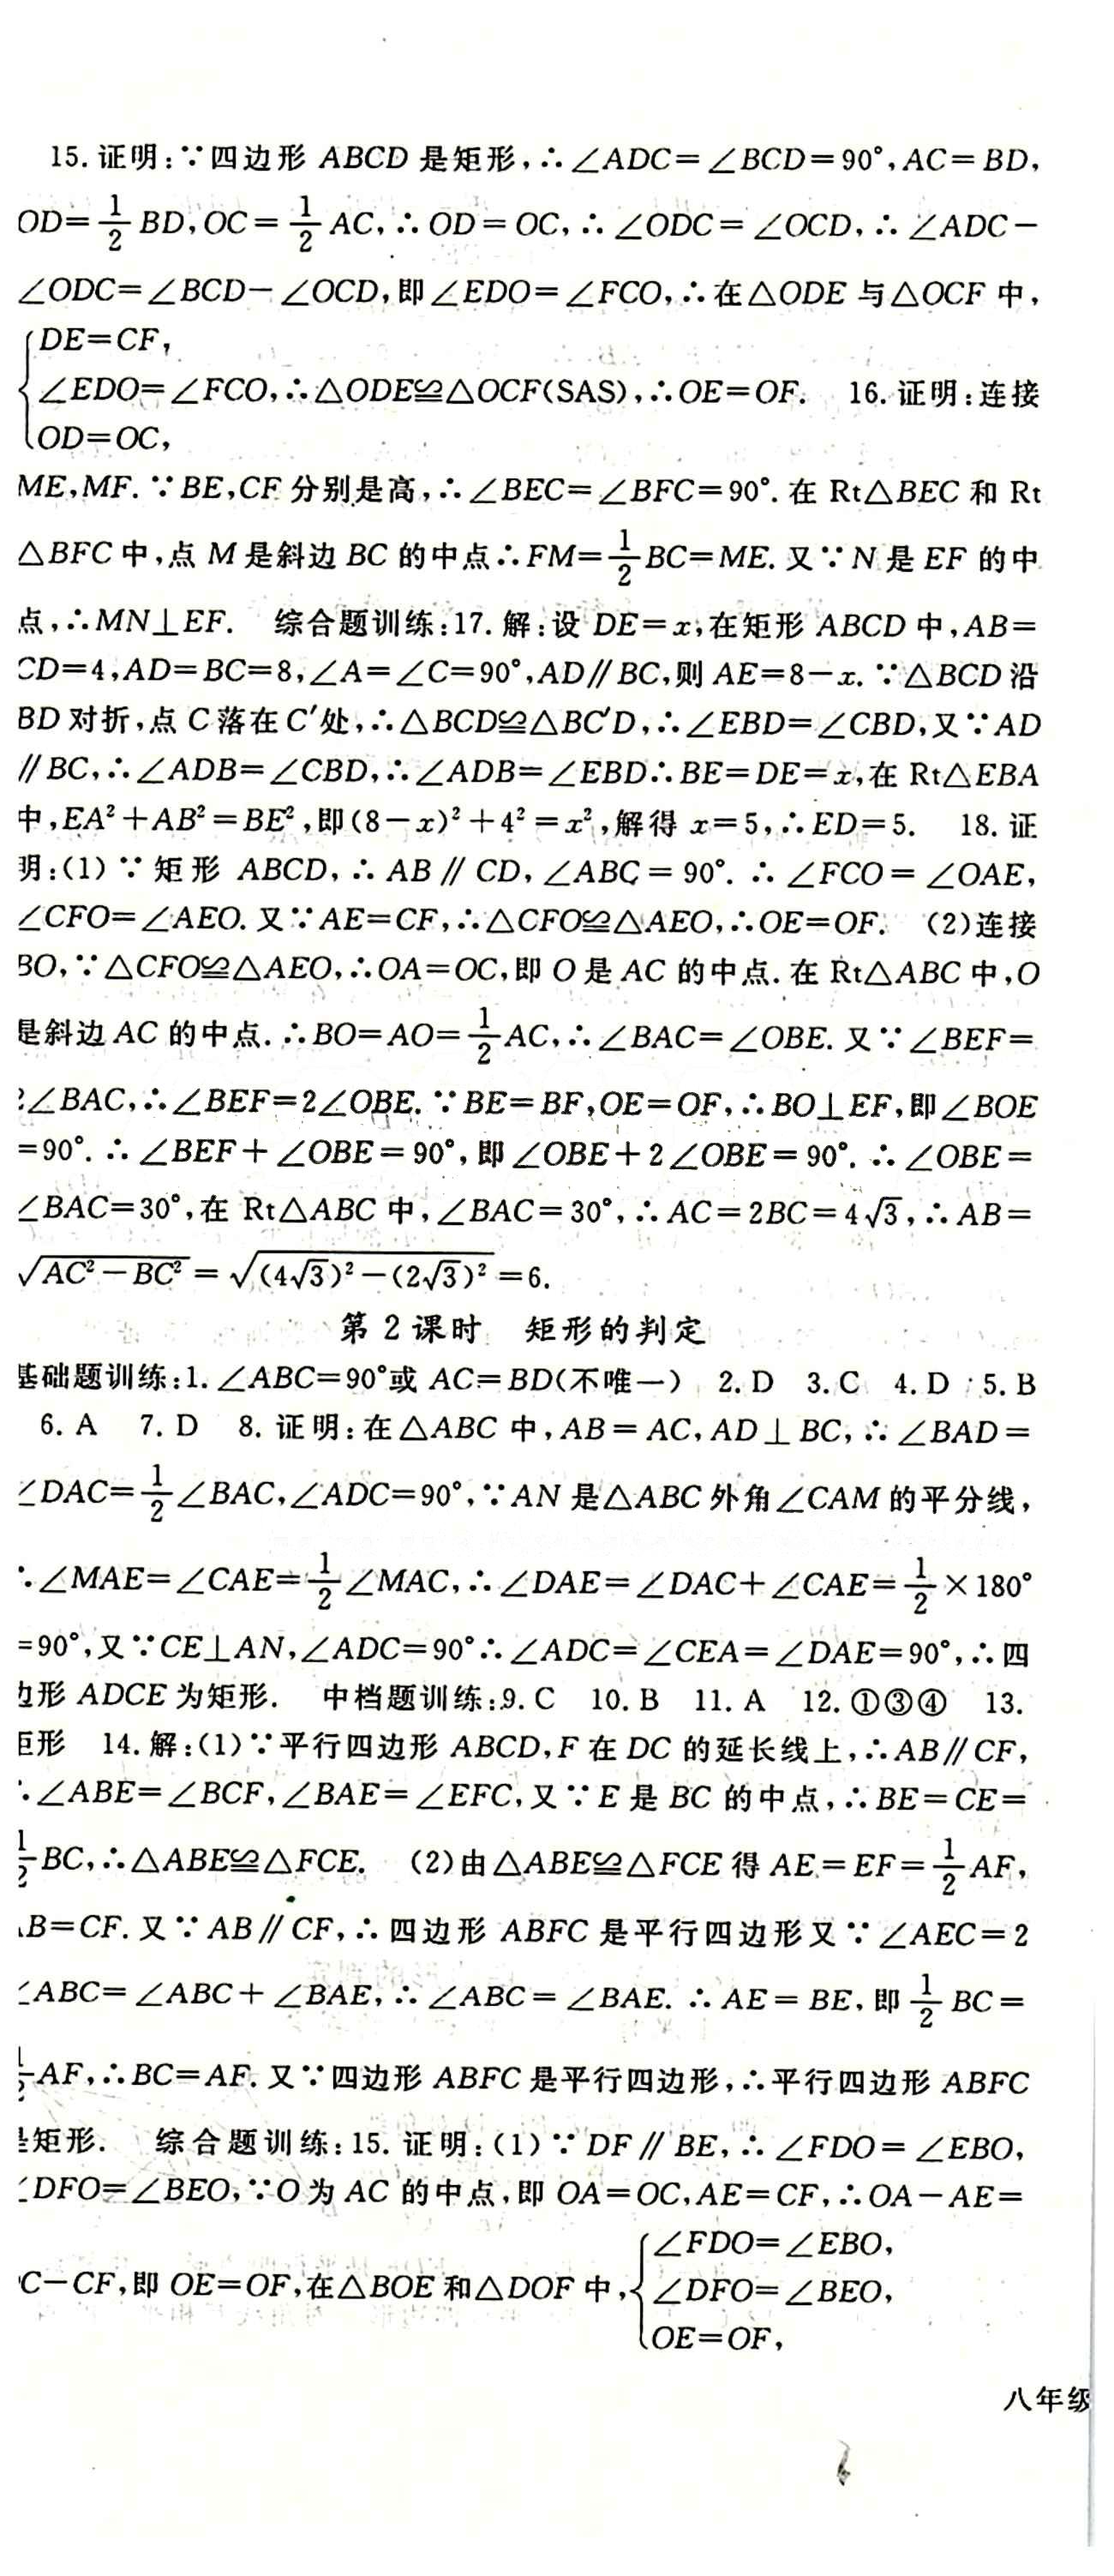 15. 证明:∵四边形 ABCD 是矩形,∴∠ADC=∠BCD=90°,AC=BD,
OD=1/2 BD,OC=1/2 AC,∴OD=OC,∴∠ODC=∠OCD,∴∠ADC-
∠ODC=∠BCD-∠OCD,即∠EDO=∠FCO,∴在△ODE 与△OCF 中,
{DE=CF,
∠EDO=∠FCO,∴△ODE≌△OCF(SAS),∴OE=OF. 16. 证明:连接
OD=OC,
ME,MF. ∵BE,CF 分别是高,∴∠BEC=∠BFC=90°. 在 Rt△BEC 和 Rt
△BFC 中,点 M 是斜边 BC 的中点∴FM=1/2 BC=ME. 又∵N 是 EF 的中
点,∴MN⊥EF. 综合题训练:17. 解:设 DE=x,在矩形 ABCD 中,AB=
CD=4,AD=BC=8,∠A=∠C=90°,AD∥BC,则 AE=8-x. ∵△BCD 沿
BD 对折,点 C 落在 C′处,∴△BCD≌△BC′D,∴∠EBD=∠CBD,又∵AD
∥BC,∴∠ADB=∠CBD,∴∠ADB=∠EBD∴BE=DE=x,在 Rt△EBA
中,EA²+AB²=BE²,即(8-x)²+4²=x²,解得 x=5,∴ED=5. 18. 证
明:(1)∵矩形 ABCD,∴AB∥CD,∠ABC=90°. ∴∠FCO=∠OAE,
∠CFO=∠AEO. 又∵AE=CF,∴△CFO≌△AEO,∴OE=OF. (2)连接
BO,∵△CFO≌△AEO,∴OA=OC,即 O 是 AC 的中点. 在 Rt△ABC 中,O
是斜边 AC 的中点. ∴BO=AO=1/2 AC,∴∠BAC=∠OBE. 又∵∠BEF=
2∠BAC,∴∠BEF=2∠OBE. ∵BE=BF,OE=OF,∴BO⊥EF,即∠BOE
=90°. ∴∠BEF+∠OBE=90°,即∠OBE+2∠OBE=90°. ∴∠OBE=
∠BAC=30°,在 Rt△ABC 中,∠BAC=30°,∴AC=2BC=4√3,∴AB=
√(AC²-BC²)=√((4√3)²-(2√3)²)=6.
第 2 课时 矩形的判定
基础题训练:1. ∠ABC=90°或 AC=BD(不唯一) 2. D 3. C 4. D 5. B
6. A 7. D 8. 证明:在△ABC 中,AB=AC,AD⊥BC,∴∠BAD=
∠DAC=1/2∠BAC,∠ADC=90°,∵AN 是△ABC 外角∠CAM 的平分线,
∴∠MAE=∠CAE=1/2∠MAC,∴∠DAE=∠DAC+∠CAE=1/2×180°
=90°,又∵CE⊥AN,∠ADC=90°∴∠ADC=∠CEA=∠DAE=90°,∴四
边形 ADCE 为矩形. 中档题训练:9. C 10. B 11. A 12. ①③④ 13.
矩形 14. 解:(1)∵平行四边形 ABCD,F 在 DC 的延长线上,∴AB∥CF,
∴∠ABE=∠BCF,∠BAE=∠EFC,又∵E 是 BC 的中点,∴BE=CE=
1/2 BC,∴△ABE≌△FCE. (2)由△ABE≌△FCE 得 AE=EF=1/2 AF,
AB=CF. 又∵AB∥CF,∴四边形 ABFC 是平行四边形又∵∠AEC=2
∠ABC=∠ABC+∠BAE,∴∠ABC=∠BAE. ∴AE=BE,即 1/2 BC=
1/2 AF,∴BC=AF. 又∵四边形 ABFC 是平行四边形,∴平行四边形 ABFC
是矩形. 综合题训练:15. 证明:(1)∵DF∥BE,∴∠FDO=∠EBO,
∠DFO=∠BEO,∵O 为 AC 的中点,即 OA=OC,AE=CF,∴OA-AE=
{∠FDO=∠EBO,
C-CF,即 OE=OF,在△BOE 和△DOF 中,∠DFO=∠BEO,
OE=OF,
八年级